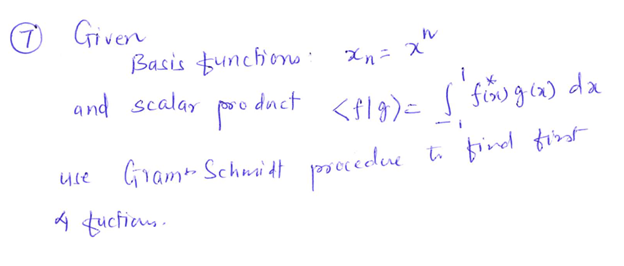 ⑦ Given
Basis functions: xₙ = xⁿ
and scalar product <f|g> = ∫₋₁¹ f*(x) g(x) dx
use Gram-Schmidt procedure to find first
4 fuctions.